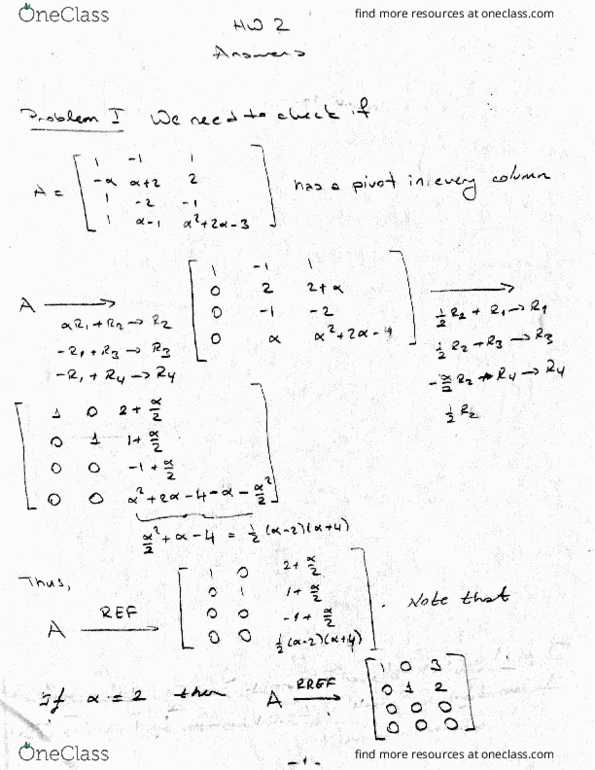 OneClass
find more resources at oneclass.com
HW 2
Answers
Problem I We need to check if
A = [ 1 -1 1
-α α+2 2
1 -2 -1
1 α-1 α²+2α-3 ] has a pivot in every column
A → [ 1 -1 1
0 2 2+α
0 -1 -2
0 α α²+2α-4 ] →
αR₁+R₂→R₂
-R₁+R₃→R₃
-R₁+R₄→R₄
½R₂+R₁→R₁
½R₂+R₃→R₃
-α/2 R₂+R₄→R₄
½R₂
[ 1 0 2+α/2
0 1 1+α/2
0 0 -1+α/2
0 0 α²+2α-4-α-α²/2 ]
α²/2+α-4 = ½(α-2)(α+4)
Thus,
A REF → [ 1 0 2+α/2
0 1 1+α/2
0 0 -1+α/2
0 0 ½(α-2)(α+4) ] . Note that
If α = 2 then A RREF → [ 1 0 3
0 1 2
0 0 0
0 0 0 ]
-1-
OneClass
find more resources at oneclass.com